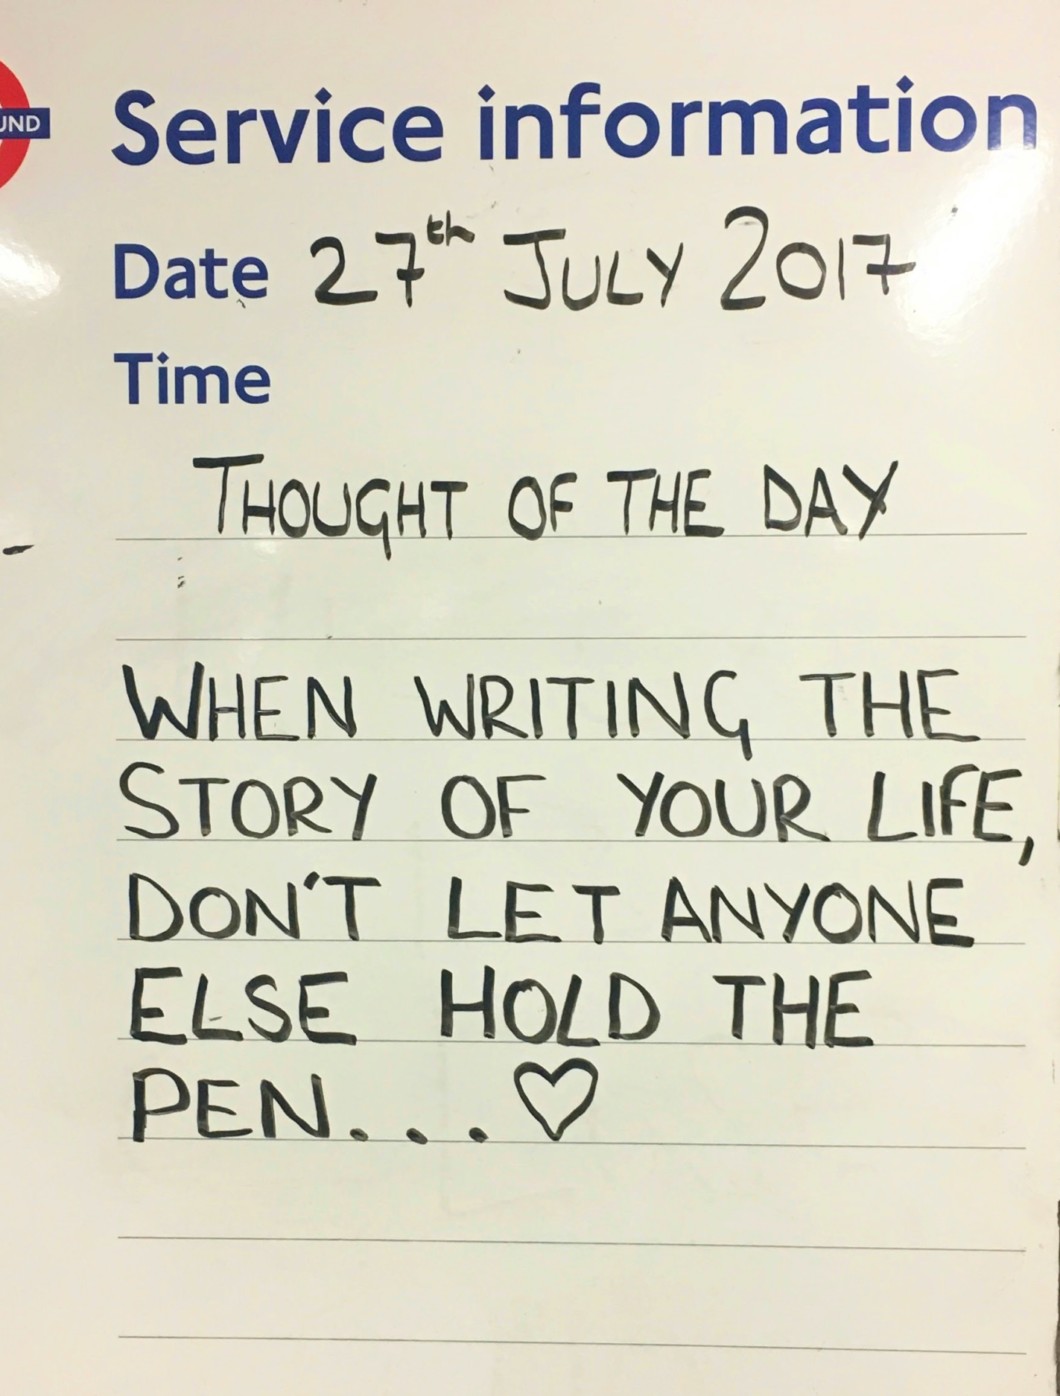 UND
Service information
Date 27th JULY 2017
Time
THOUGHT OF THE DAY
WHEN WRITING THE
STORY OF YOUR LIFE,
DON'T LET ANYONE
ELSE HOLD THE
PEN... ♡